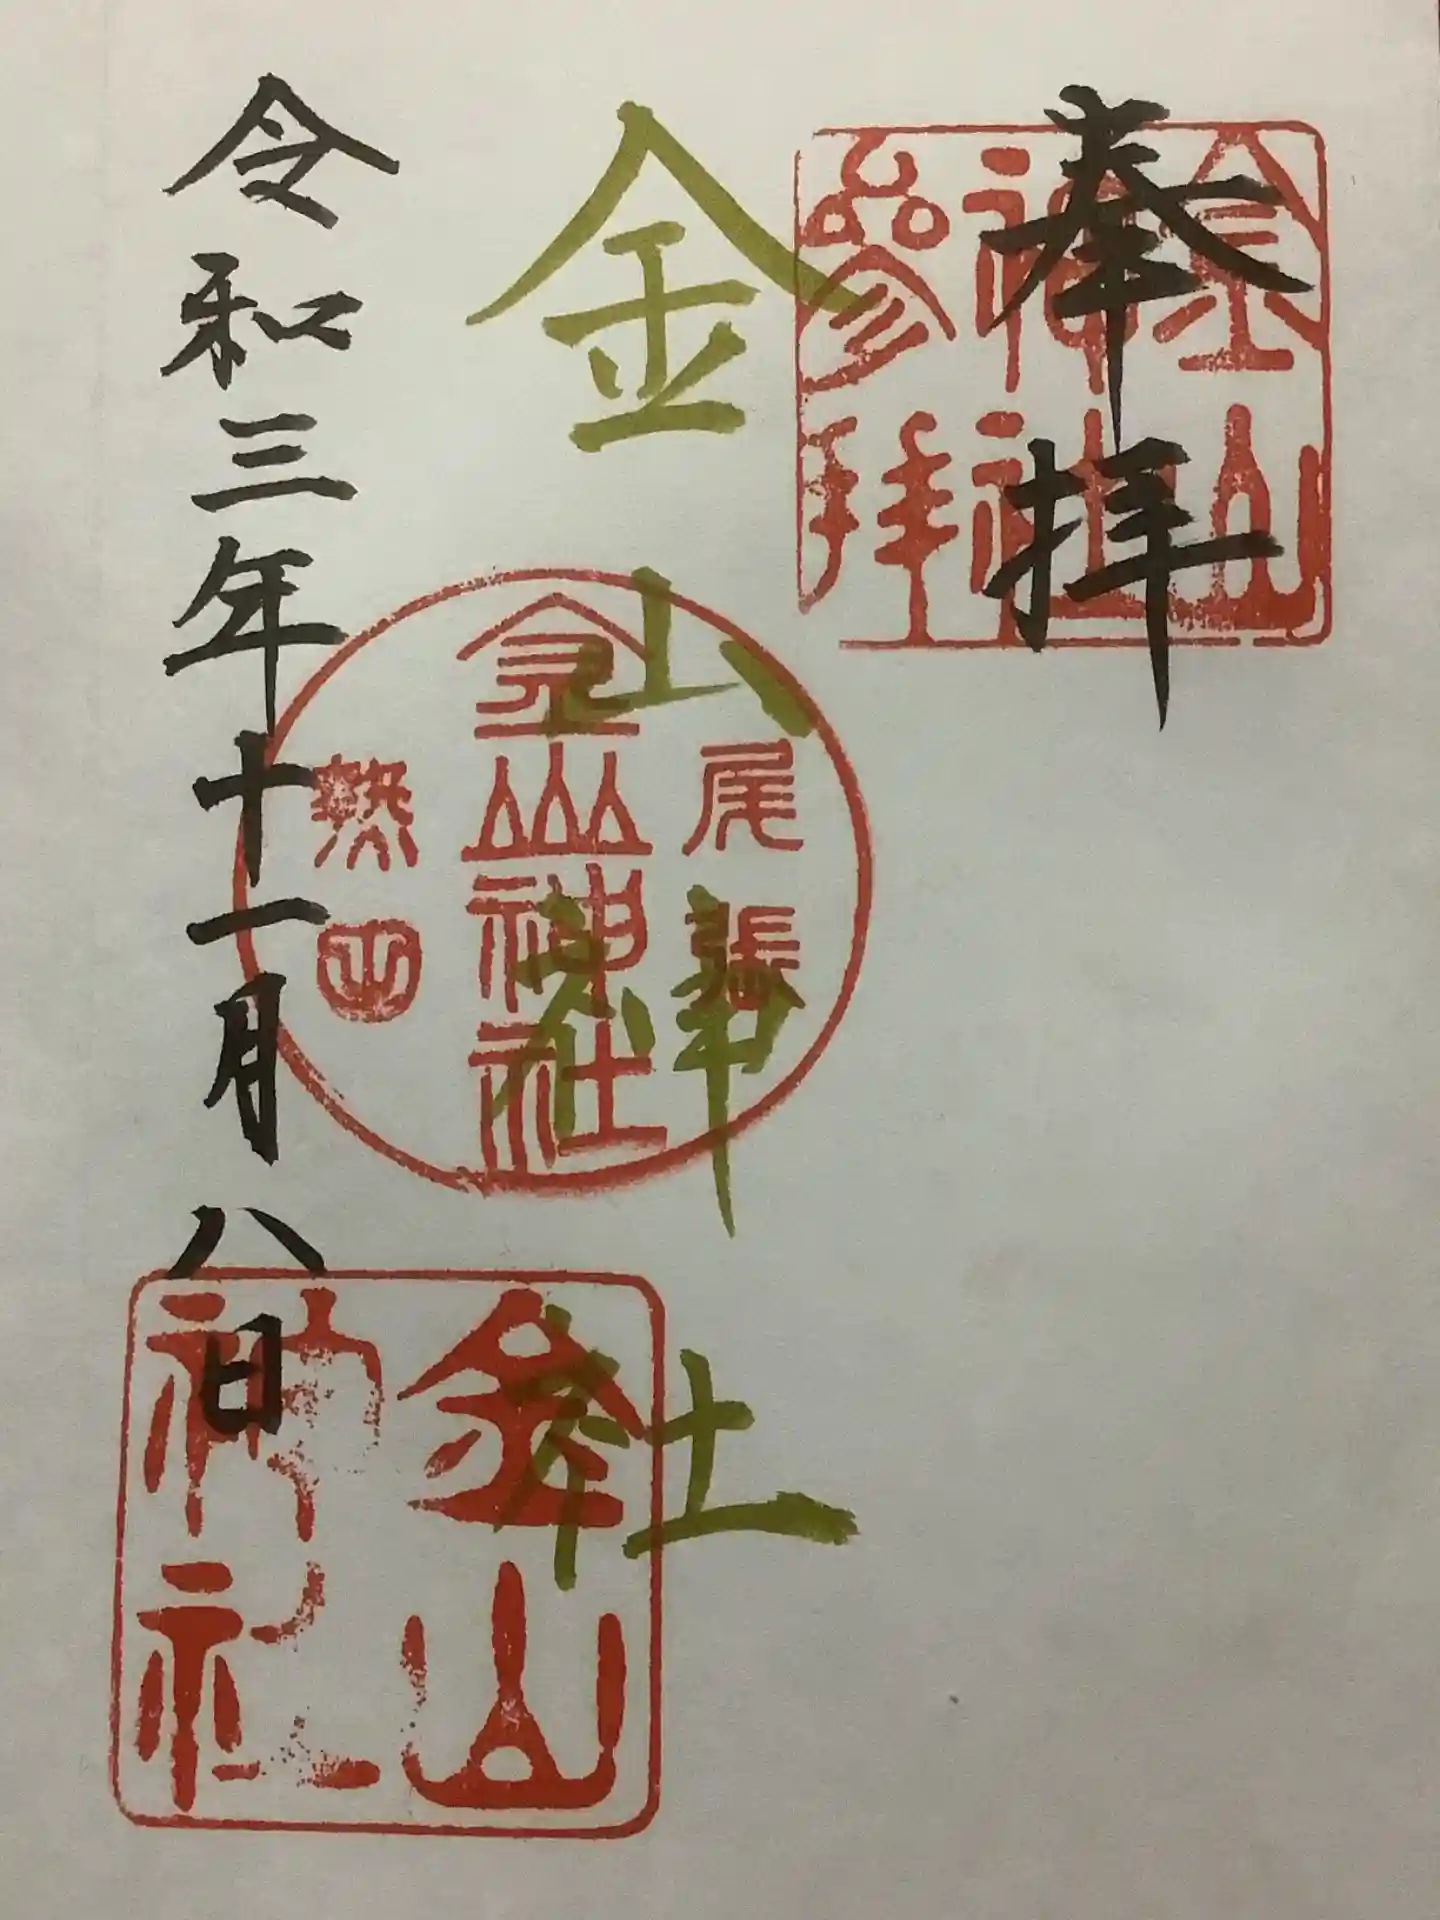 奉拝
金山神社参拝
金山神社
尾張
金山神社
熱田
令和三年十一月八日
金山
神社